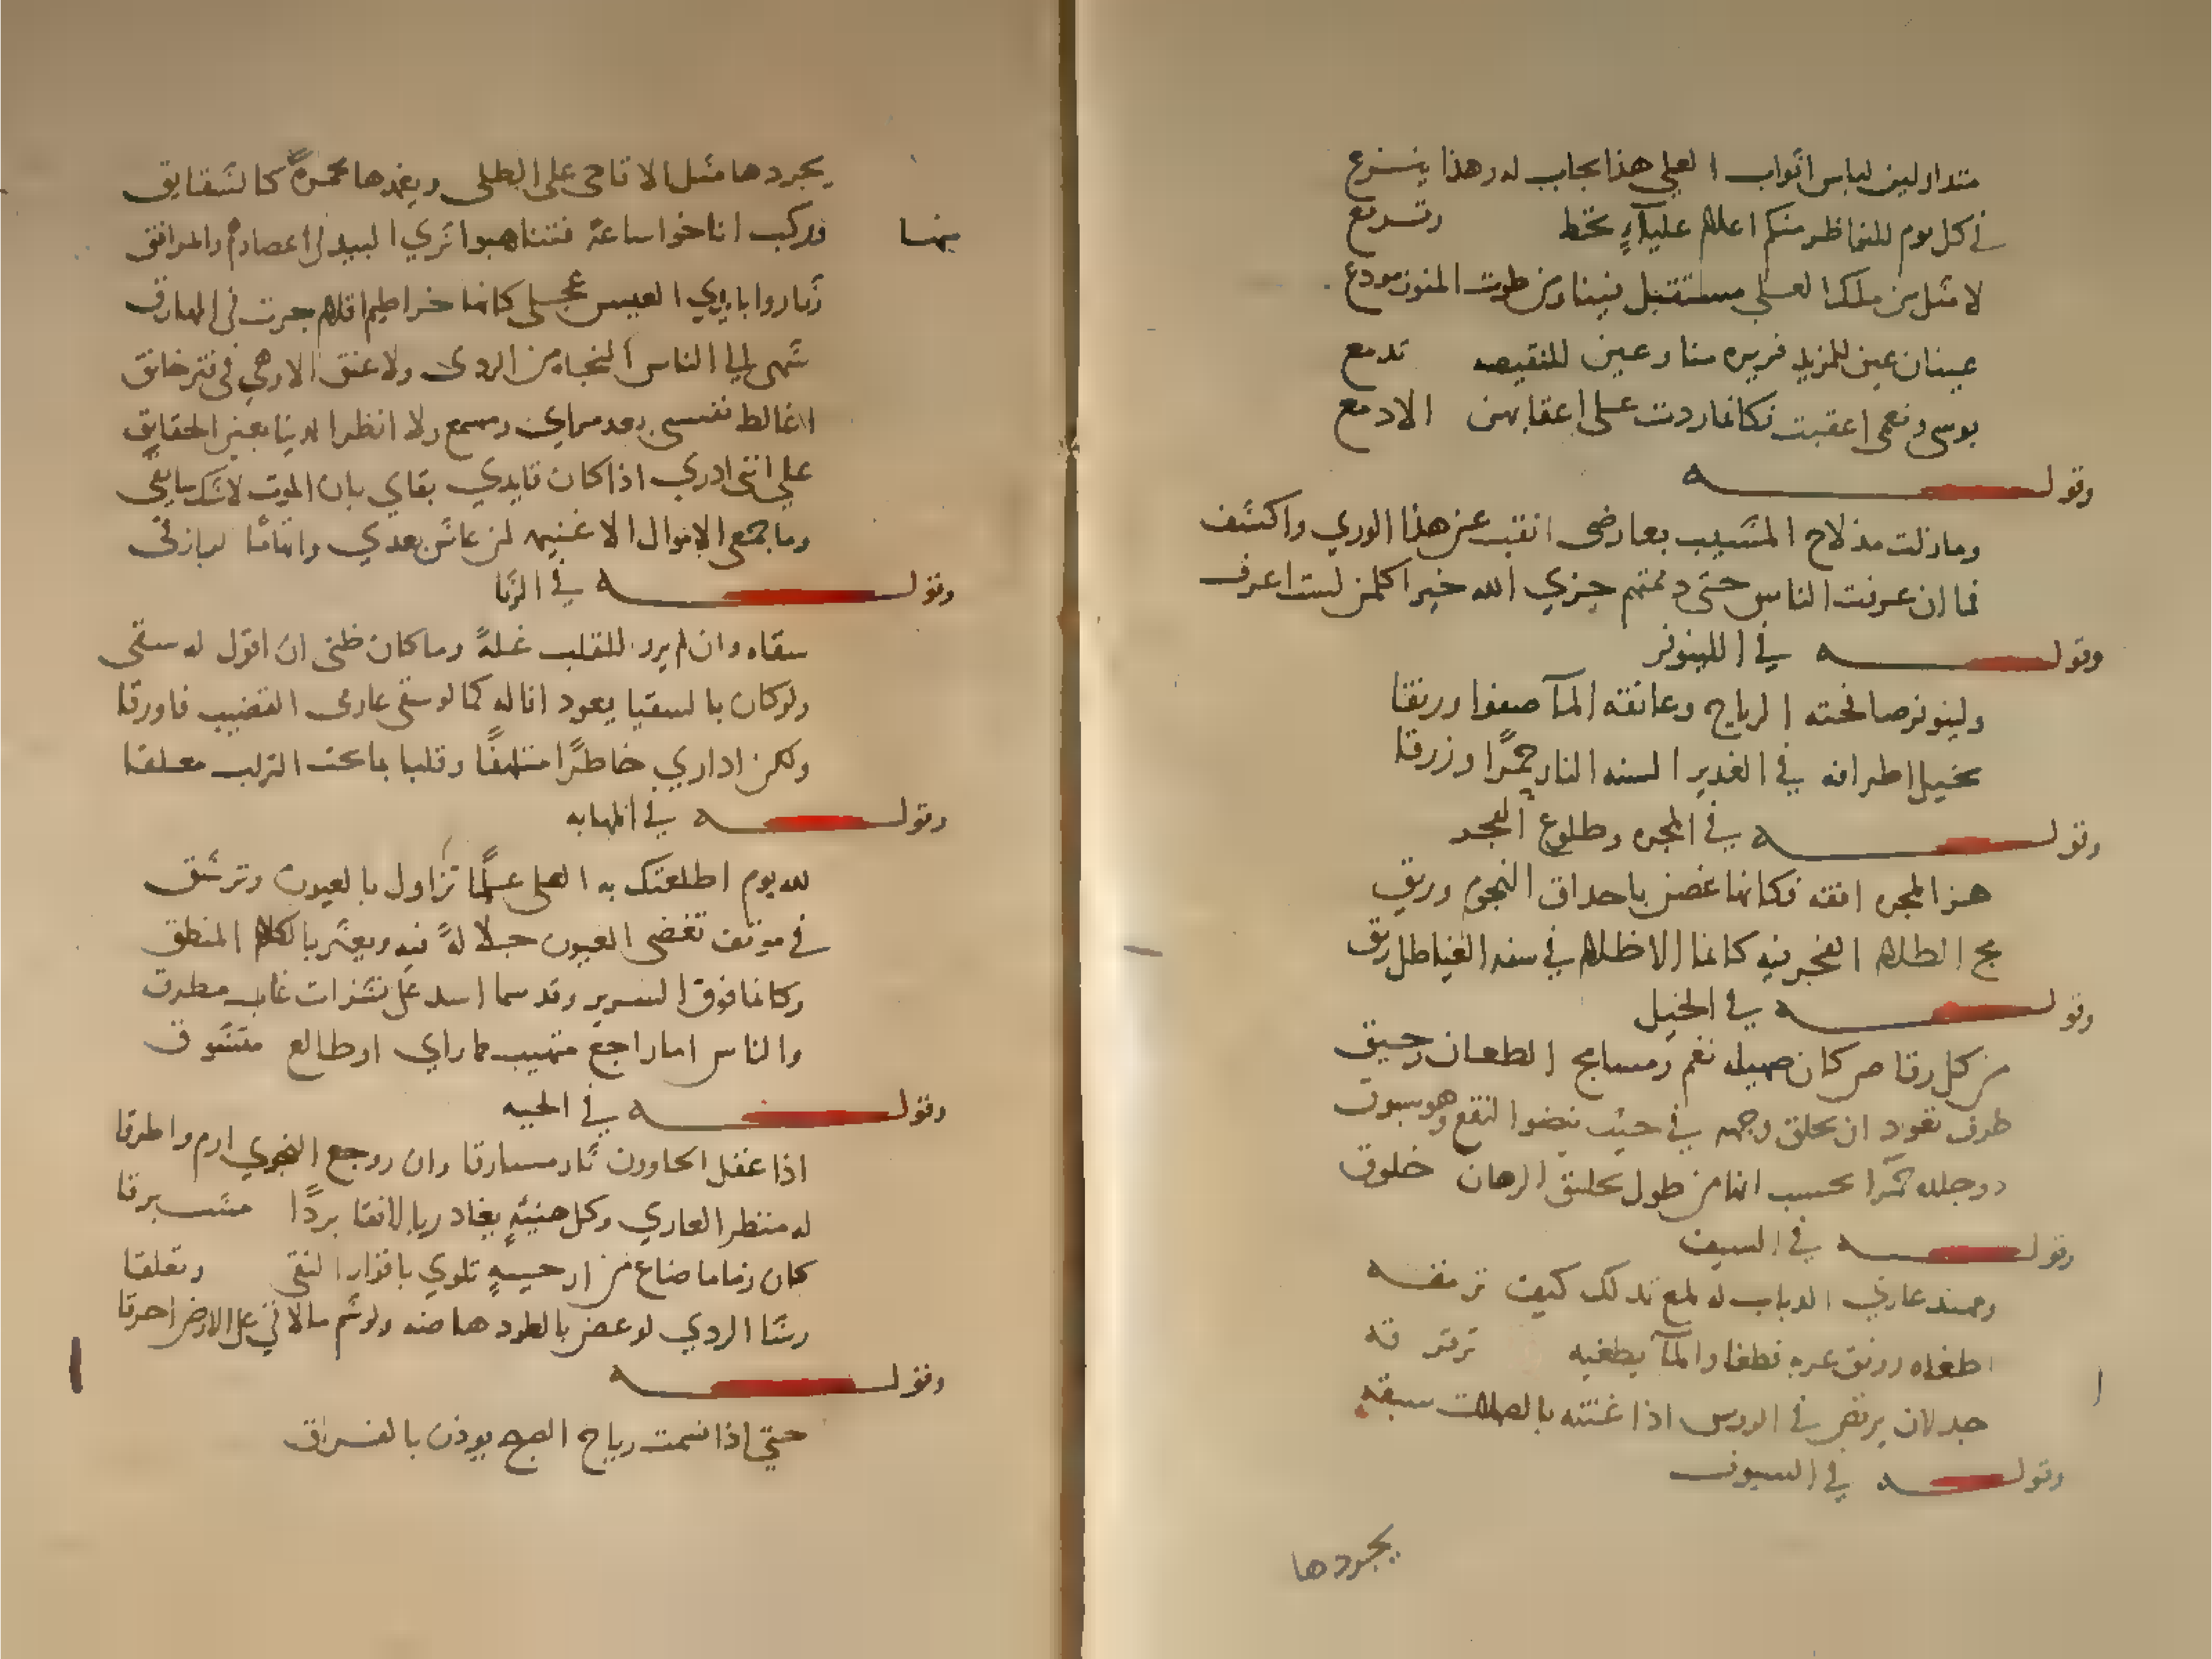 متداولين لباس اثواب العلي هذا يجاب له وهذا ينزع
في كل يوم للنواظر منكم اعلام علياءٍ تحط وترفع
لا مثل من ملك العلى مستقبل فينا ومن طوت المنون مودع
عينان عين للمزيد قريره منا وعين للنقيصه تدمع
بوسى ونعمى اعقبت فكانما ردت على اعقابهن الادمع
وقوله
ومازلت مذ لاح المشيب بعارضى انقب عن هذا الوري واكشف
فما ان عرفت الناس حتى ذممتهم جزي الله خيرا كل من لست اعرف
وقوله في اللينوفر
ولينوفر صافحته الرياح وعانقه المآ صفوا ورنقا
تخيل اطرافه في الغدير السنه النار حمرًا وزرقا
وقوله في المجره وطلوع الفجر
هز المجره افقه فكانها غصن باحداق النجوم وريق
مج الظلام الفجر فيه كانما الاظلام في
وقوله في الخيل
من كل رقاص كان صهيله نغم ومسابح الطعان رحيق
طرف تعود ان يخلق وجهه في حيث ينضوا النقع وهو سبوق
ذو جلده حمرا تحسب انها من طول تخليق الرهان خلوق
وقوله في السيف
ومهند عاري الذباب له لمع تدلك كيف ترمقه
اطفاه رونق غربه فطفا والمآ يطفيه ترقرقه
جذلان يرقص في الروس اذا غنته بالصلات
وقوله في السيوف
يجردها
يجردها مثل الاقاحى على الطلى ويغمدها محمرةً كالشقايق
منها
وركب اناخوا ساعة فتناهبوا ثري البيد في اعضادهم والمرافق
وثاروا بايدي العيس عجلى كانما خراطيم اقلام جرت في المهارق
شهى لي الناس النجاء من الردى ولا عنق الا وهي في فتر خانق
اغالط نفسى بعد مراي ومسمع ولا انظر الدنيا بعين الحقايق
على انني ادري اذا كان قايدي بقاي بان الموت لا شك سايقى
وما جمعى الاموال الا غنيمه لمن عاش بعدي واتهاما لرازقى
وقوله في الرثا
سقاه وان لم يرو للقلب غلةً وما كان ظنى ان اقول له سقى
ولو كان بالسقيا يعود اناله كما لو سقى عارى القضيب فاورقا
ولكن اداري خاطرًا متلهفًا وقلبا بما تحت الترب معلقا
وقوله في المهابه
لله يوم اطلعتك به العلى علمًا تزاول بالعيون وترشق
في موقف تغضى العيون جلالةً فيه ويعثر بالكلام المنطق
وكانما فوق السرير وقد سما اسد على نشزات غاب مطرق
والناس اما راجع متهيب مما راي او طالع متشوق
وقوله في الحيه
اذا غفل الحاوون ثار مساورقا وان روجع النجوي ارم واطرقا
له منتظر العاري وكل عشيةٍ يغادر بالانقا بردًا مشبرقا
كان زماما ضاع من ارحبيةٍ تلوي باقواز النقى وتعلقا
رشا الردي لو عض بالطود هاضه ولو شم ما لاقي على الارض احرقا
وقوله
حتى اذا نسمت رياح الصبح يوذن بالفراق